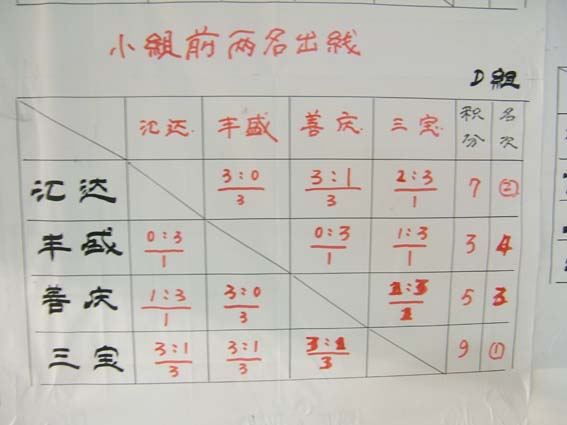 小組前两名出线
D組
汇达 丰盛 善庆 三宝 积分 名次
汇达 3:0/3 3:1/3 2:3/1 7 ②
丰盛 0:3/1 0:3/1 1:3/1 3 4
善庆 1:3/1 3:0/3 1:3/1 5 3
三宝 3:1/3 3:1/3 3:1/3 9 ①